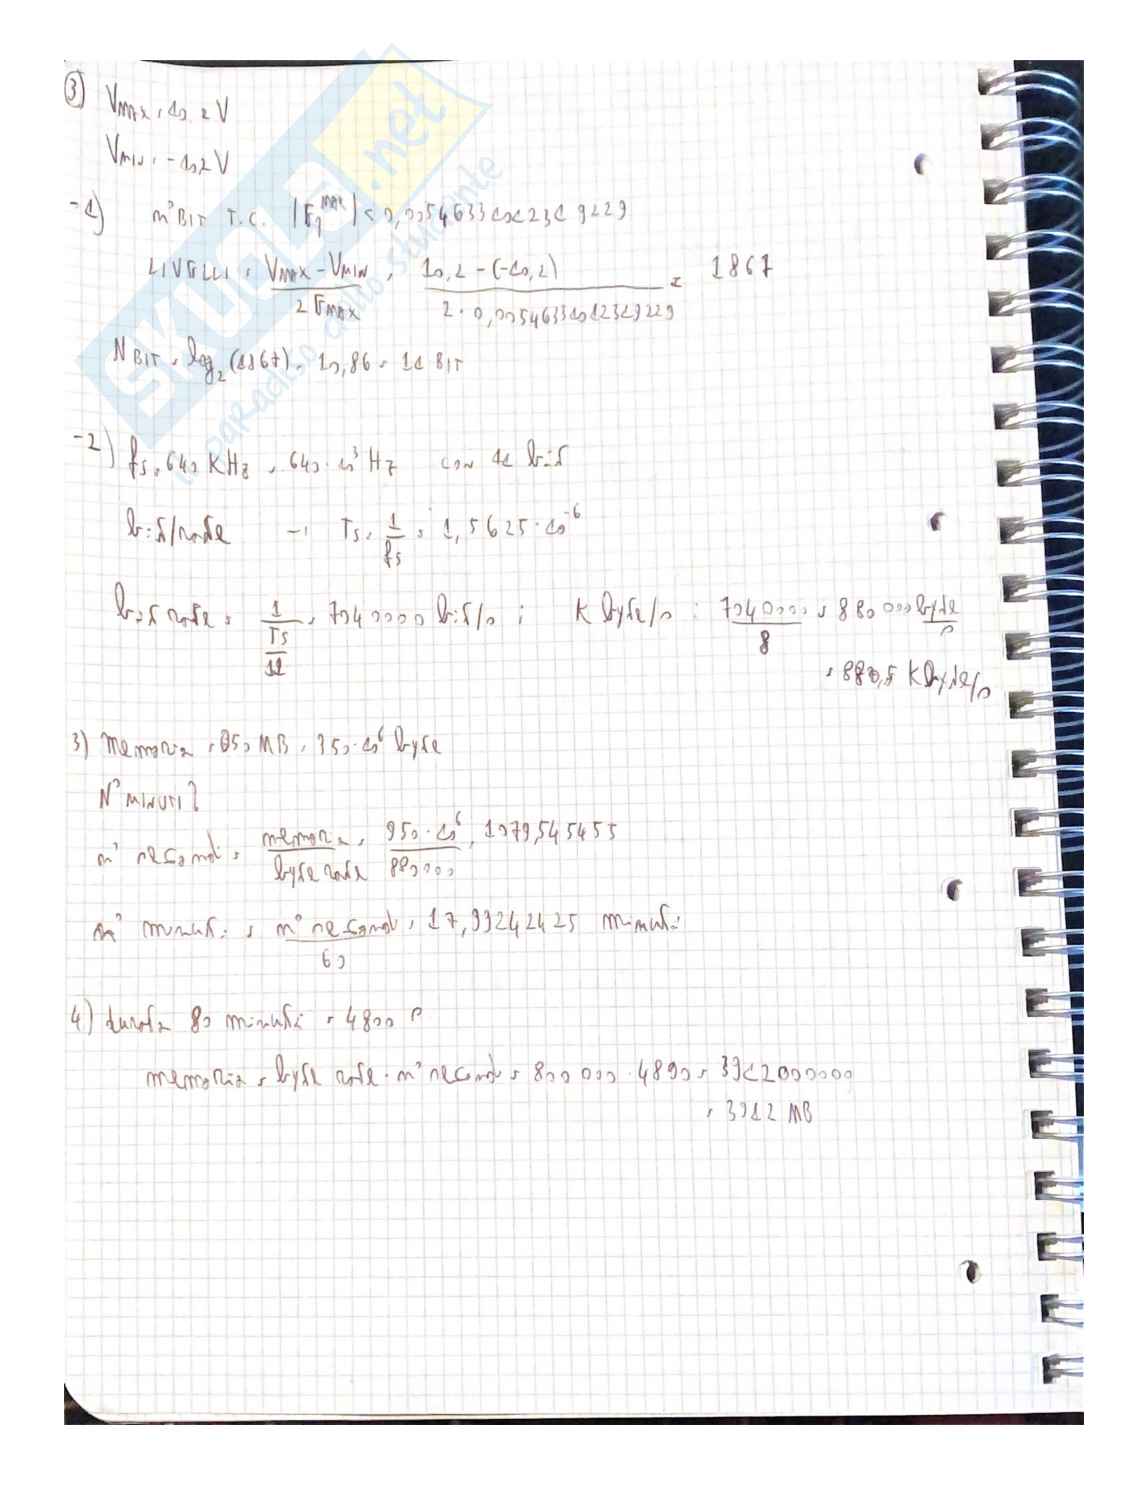 3)
VMAX = 10,2 V
VMIN = -10,2 V
-1) n° BIT T.C. |Eq^MAX| < 0,0054633101231 9229
LIVELLI = VMAX - VMIN / 2 EMAX = 10,2 - (-10,2) / 2 · 0,00546331012319229 = 1867
NBIT = log2(1867) = 10,86 = 11 BIT
-2) fs = 640 KHz = 640 · 10^3 Hz con 11 bit
bit/rate → Ts = 1/fs = 1,5625 · 10^-6
bit rate = 1 / Ts / 11 = 7040000 bit/s ; K byte/s : 7040000 / 8 = 880 000 byte/s
= 880, Kbyte/s
3) memoria = 950 MB = 950 · 10^6 byte
N° MINUTI?
n° secondi = memoria / byte rate = 950 · 10^6 / 880000 = 1079,545455
n° minuti = n° secondi / 60 = 17,99242425 minuti
4) durata 80 minuti = 4800 s
memoria = byte rate · n° secondi =
MB
SKUOLA.net
il paradiso dello studente